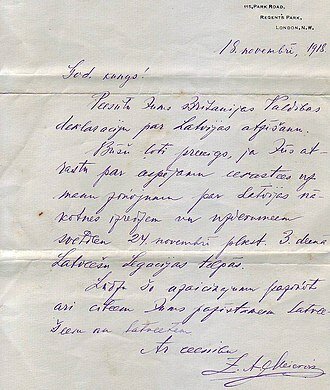 115, PARK ROAD,
REGENT'S PARK,
LONDON, N.W.
18. novembrī, 1918
God. kungs!
Piesūtu Jums Britanijas Valdības
deklaraciju par Latvijas atzīšanu.
Būšu ļoti priecīgs, ja Jūs at-
rastu par iespējamu ierasties uz
manu ziņojumu par Latvijas nā-
kotnes izredzēm un uzņēmumiem
svētdien 24 novembrī plkst. 3. dienā
Latveešu Legacijas telpās.
Lūdzu šo uzaicinājumu paziņot
arī citeem Jums pazīstameem latvee-
šeem un latveetēm
Ar cieņibu